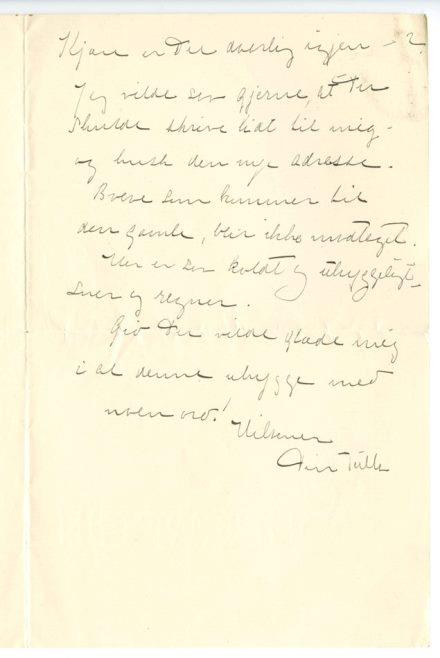 Kjære er Der daarlig igjen – ?
Jeg vilde saa gjerne, at Der
skulde skrive lidt til mig –
og husk den nye adresse.
Breve som kommer til
den gamle, blir ikke modtaget.
Her er saa koldt og uhyggeligt –
sner og regner.
Giv Der vilde glæde mig
i al denne uhygge med
noen ord!
Hilsener
Din Tulla